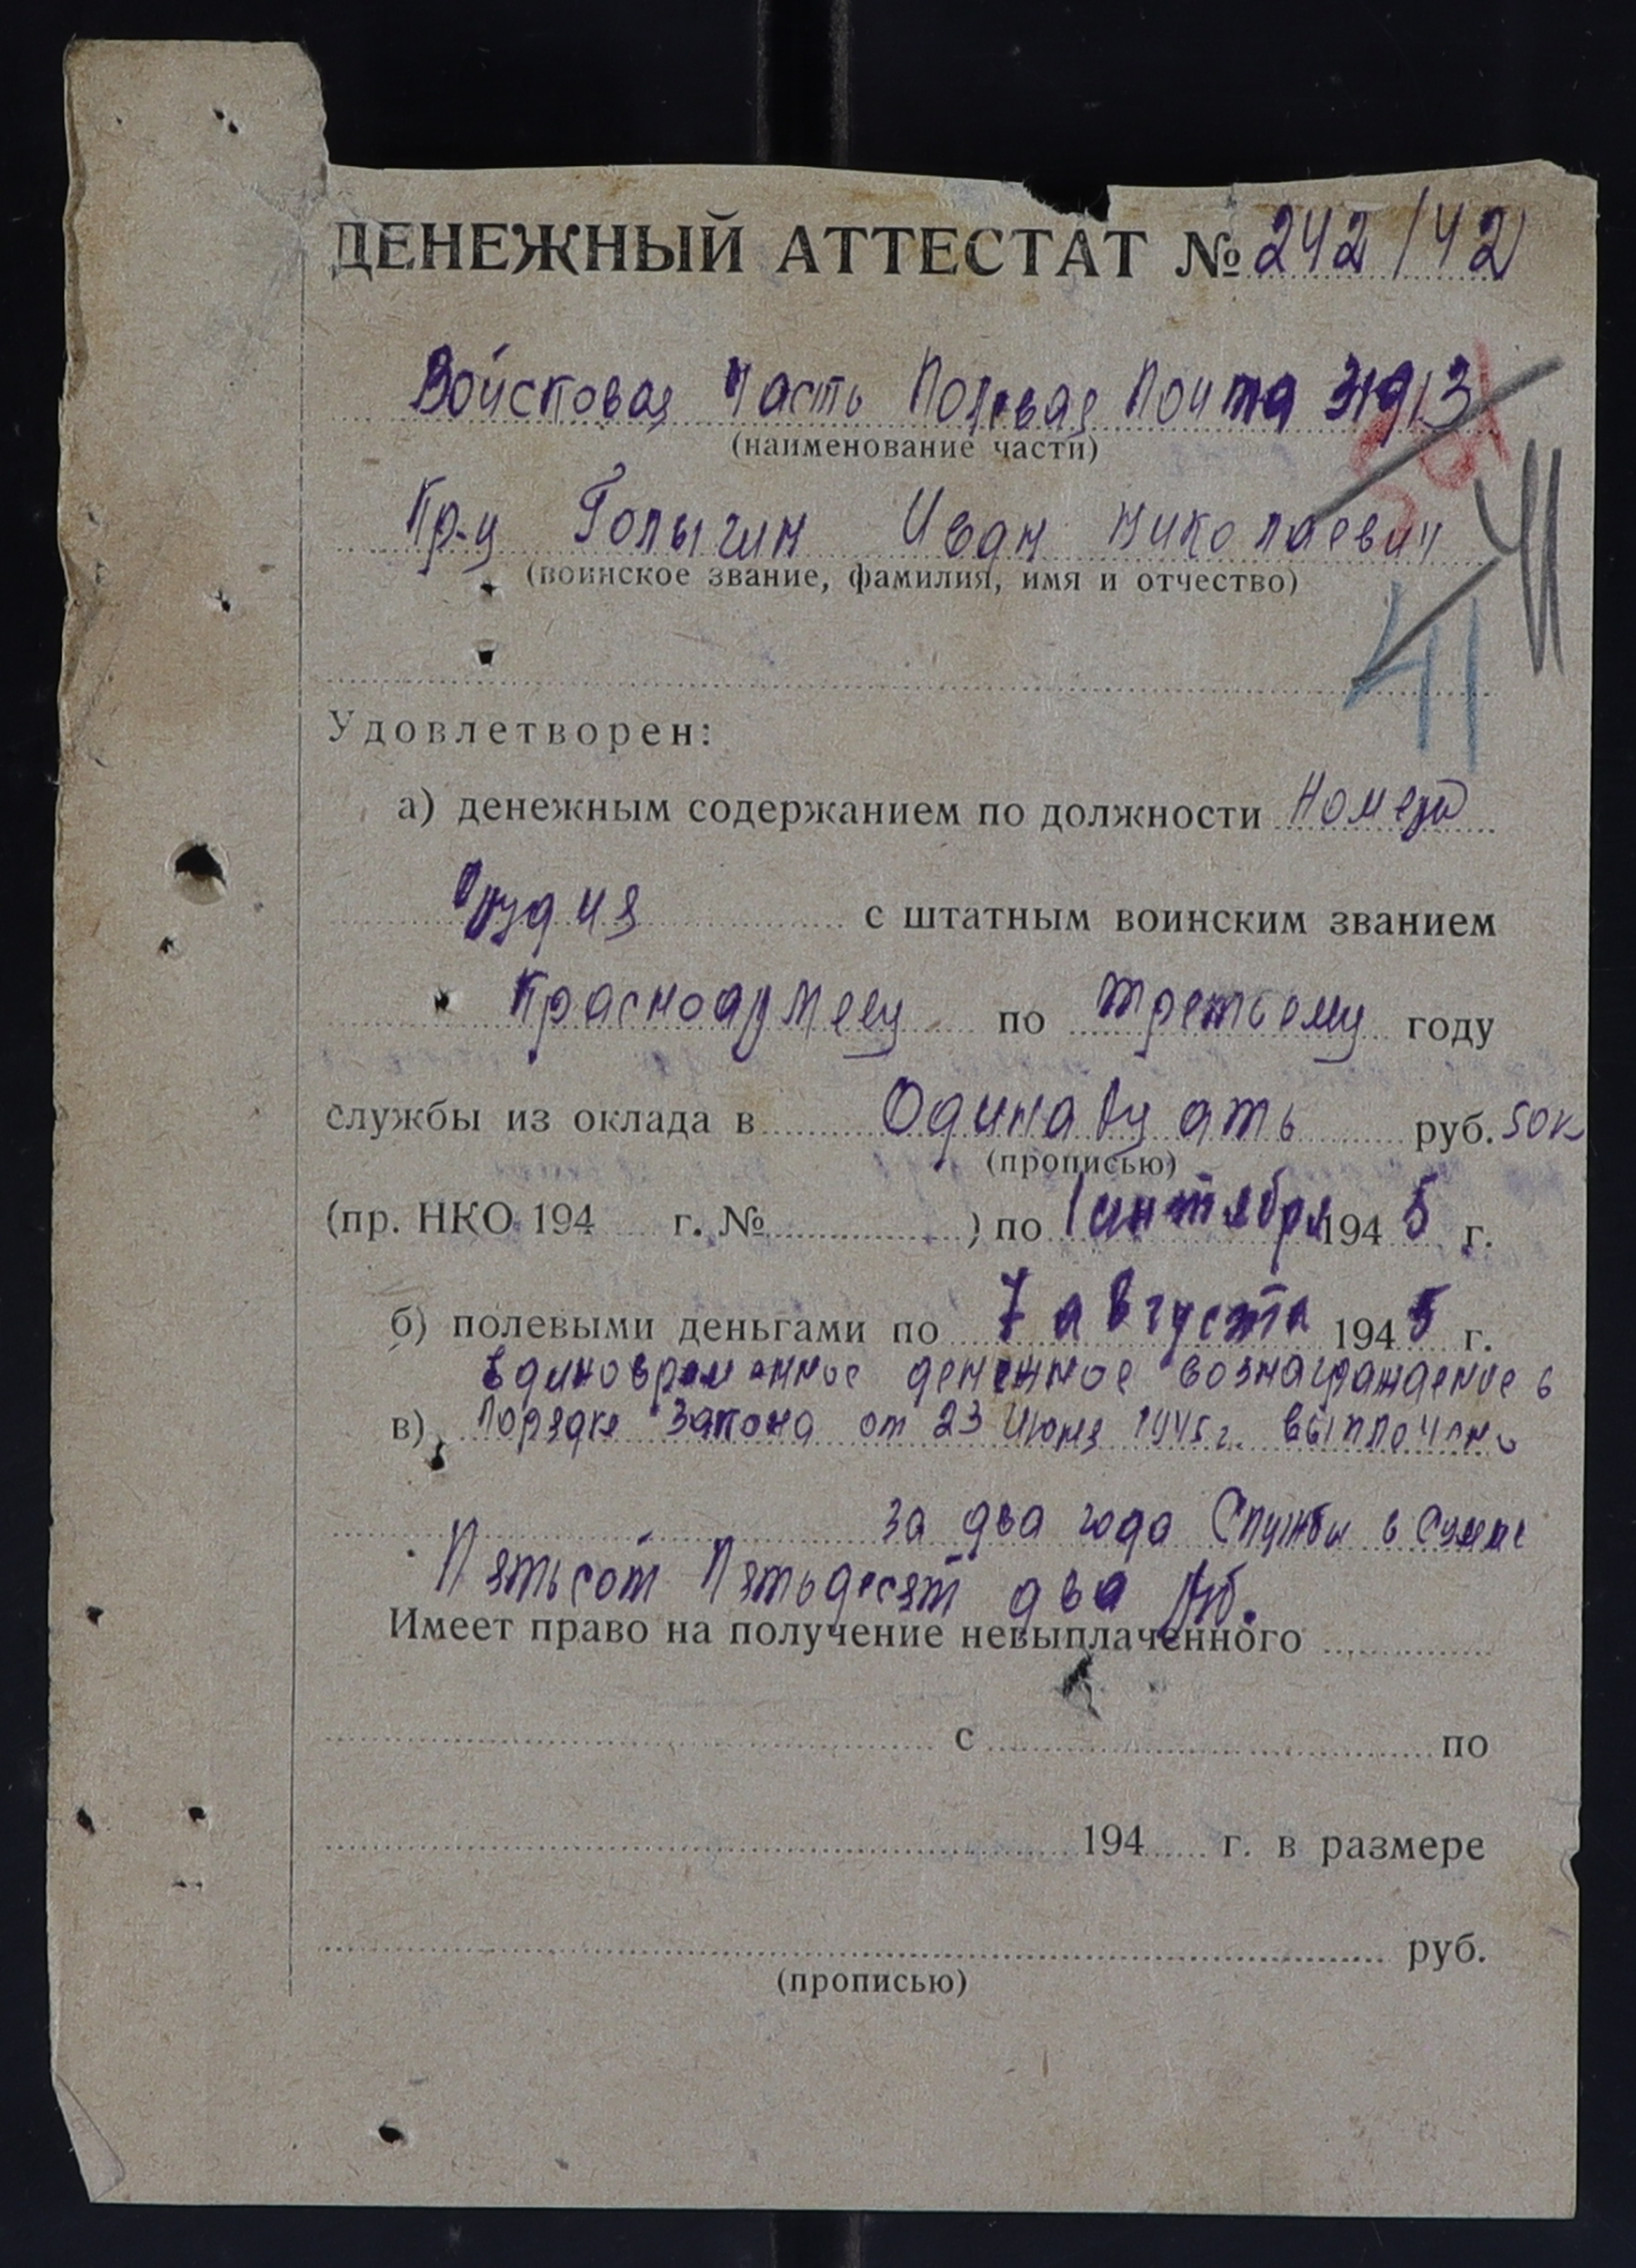 ДЕНЕЖНЫЙ АТТЕСТАТ № 242/42
Войсковая Часть Полевая Почта
(наименование части)
Кр-ц Голыгин Иван Николаевич
(воинское звание, фамилия, имя и отчество)
41
41
Удовлетворен:
а) денежным содержанием по должности Номера
Орудия с штатным воинским званием
Красноармеец по третьему году
службы из оклада в Одинадцать руб. 50к
(прописью)
(пр. НКО 194 г. № ) по 1 сентября 194 5 г.
б) полевыми деньгами по 7 августа 194 5 г.
Единовременное денежное вознаграждение в
в) порядке Закона от 23 Июня 1945 г. выплочено
за два года Службы в Сумме
Пятьсот Пятьдесят два руб.
Имеет право на получение невыплаченного
с по
194 г. в размере
руб.
(прописью)